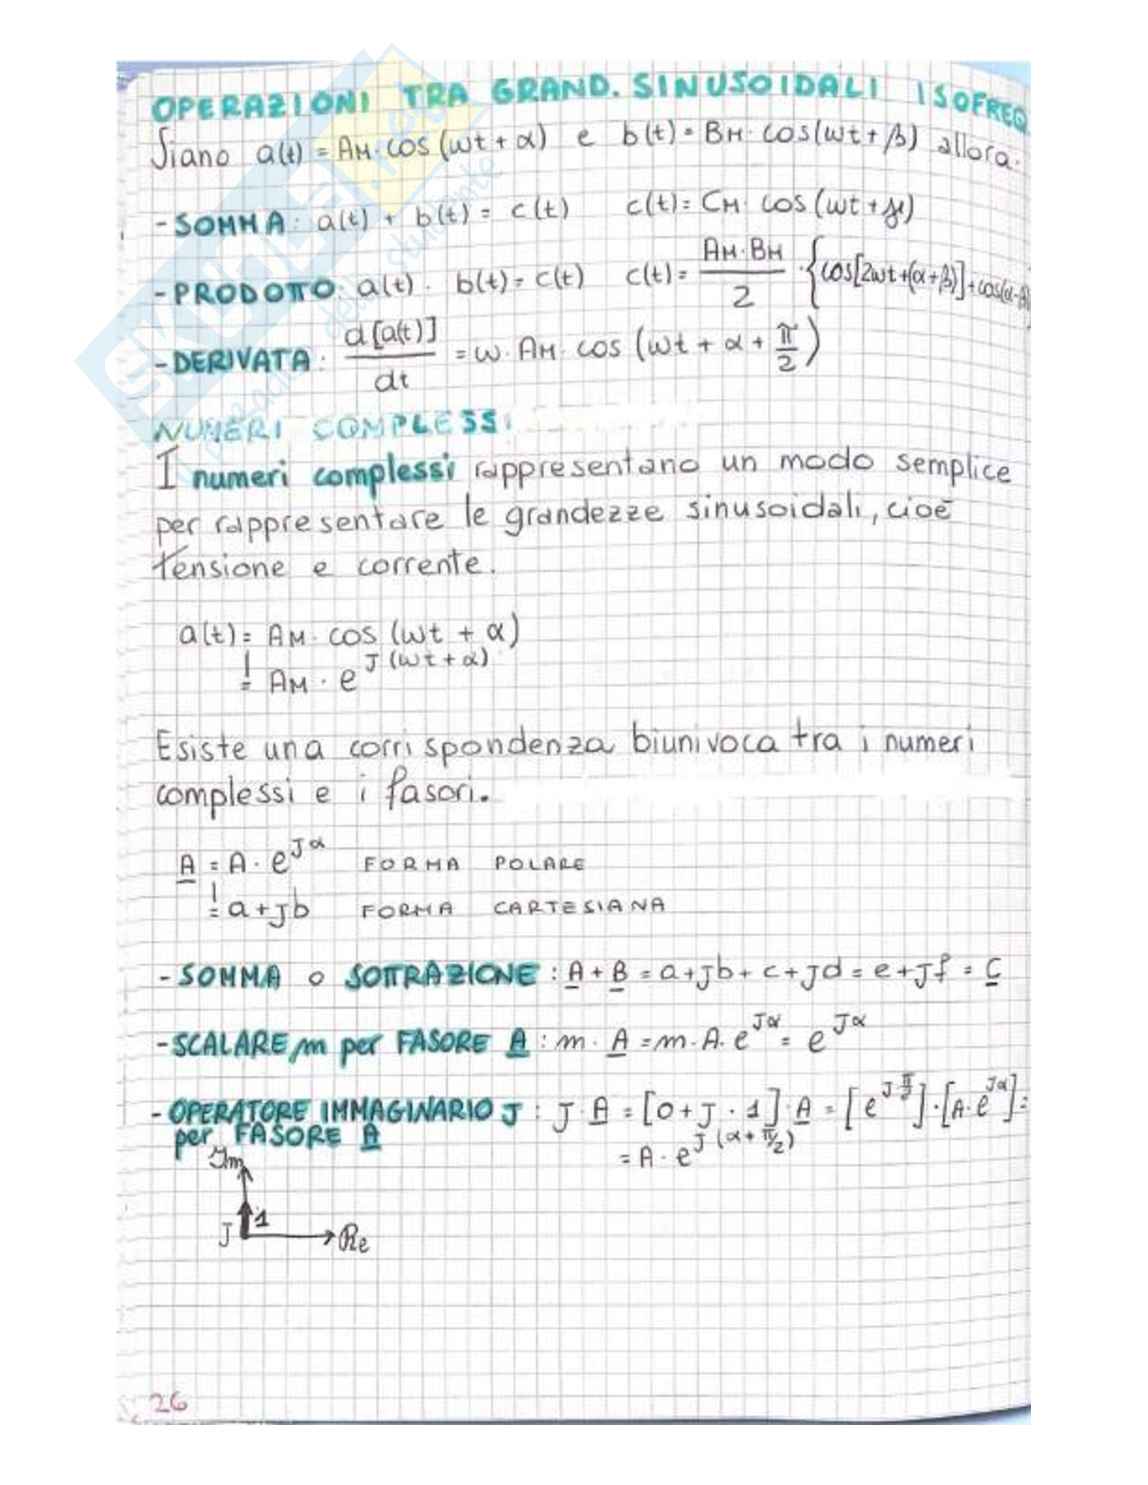 OPERAZIONI TRA GRAND. SINUSOIDALI ISOFREQ
Siano a(t) = AM · cos (ωt + α) e b(t) = BM · cos(ωt + β) allora:
- SOMMA: a(t) + b(t) = c(t) c(t) = CM · cos (ωt + γ)
- PRODOTTO: a(t) · b(t) = c(t) c(t) = AM · BM / 2 · {cos[2ωt+(α+β)]+cos(α-β)
- DERIVATA: d[a(t)] / dt = ω · AM · cos (ωt + α + π/2)
NUMERI COMPLESSI
I numeri complessi rappresentano un modo semplice
per rappresentare le grandezze sinusoidali, cioè
tensione e corrente.
a(t) = AM · cos (ωt + α)
= AM · e^J(ωt + α)
Esiste una corrispondenza biunivoca tra i numeri
complessi e i fasori.
A = A · e^Jα FORMA POLARE
= a + Jb FORMA CARTESIANA
- SOMMA o SOTTRAZIONE: A + B = a + Jb + c + Jd = e + Jf = C
- SCALARE m per FASORE A: m · A = m · A · e^Jα = e^Jα
- OPERATORE IMMAGINARIO J : J · A = [0 + J · 1] · A = [e^Jπ/2] · [A · e^Jα] =
per FASORE A = A · e^J(α + π/2)
Im
J 1 Re
26